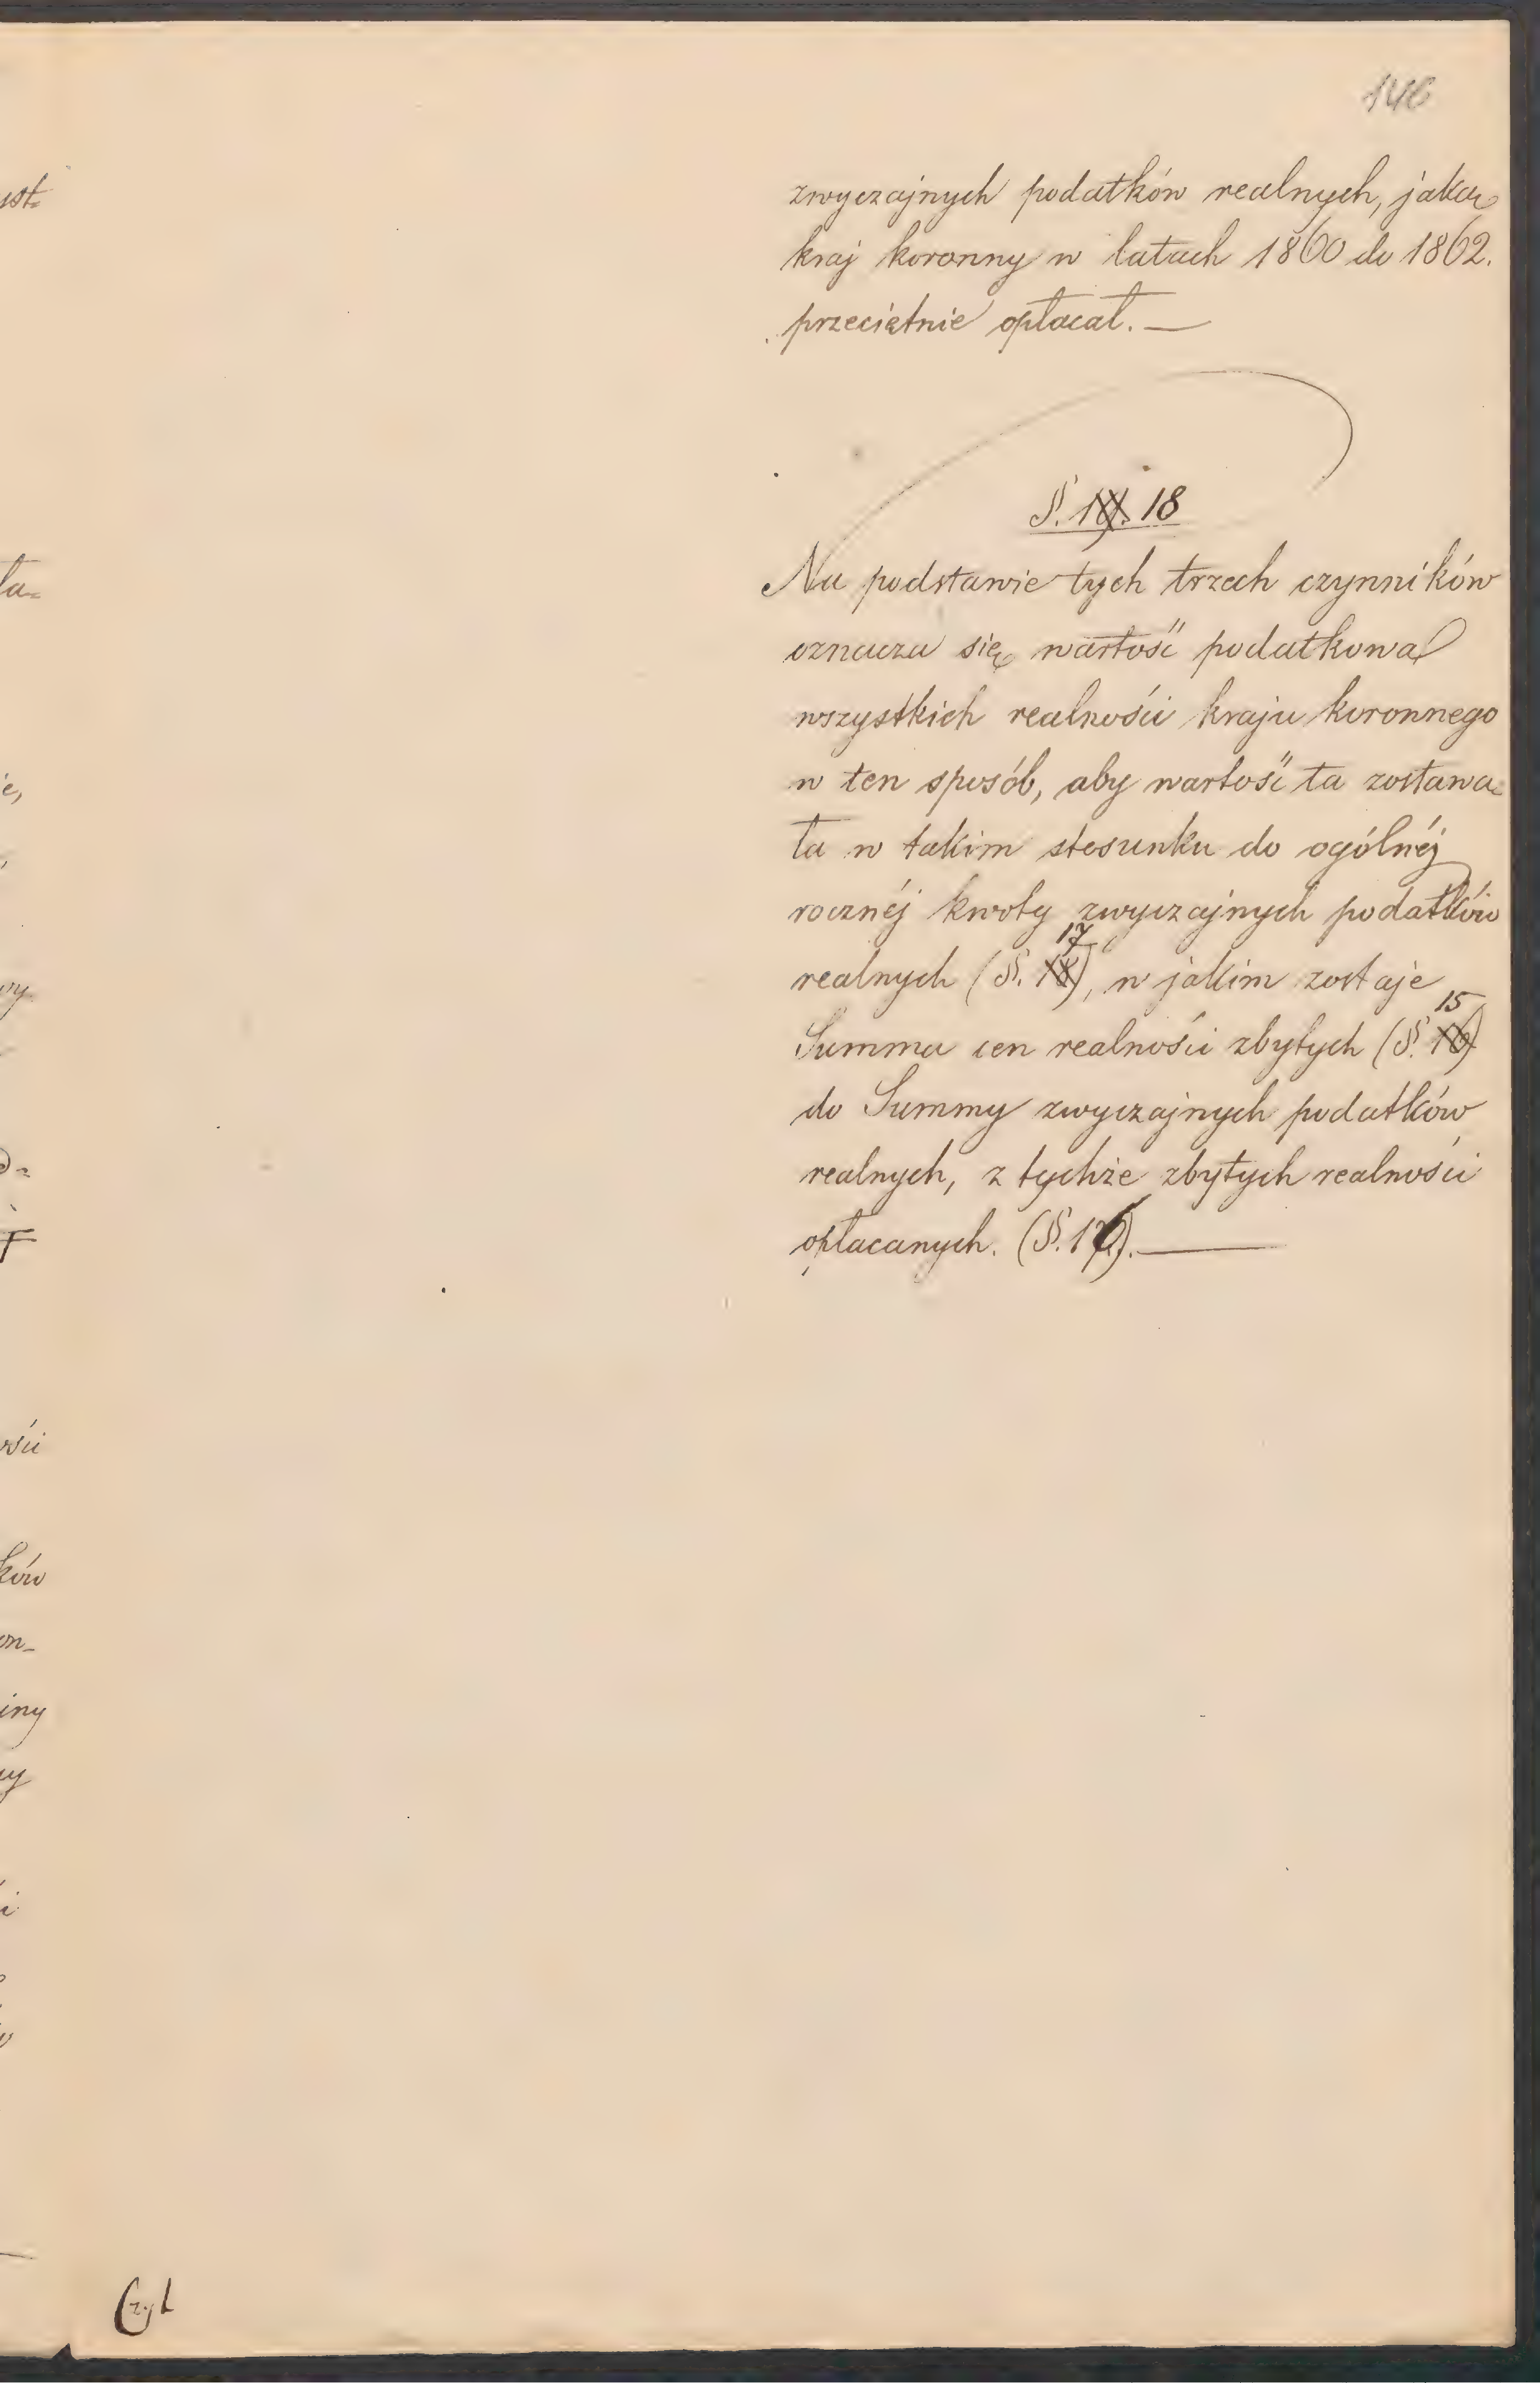 146
zwyczajnych podatków realnych, jaką
kraj koronny w latach 1860 do 1862.
przeciętnie opłacał. —
§. 19. 18
Na podstawie tych trzech czynników
oznacza się wartość podatkowa
wszystkich realności kraju koronnego
w ten sposób, aby wartość ta zostawa=
ła w takim stosunku do ogólnéj
rocznéj kwoty zwyczajnych podatków
17
realnych (§. 18), w jakim zostaje
15
Summa cen realności zbytych (§. 16)
do Summy zwyczajnych podatków
realnych, z tychże zbytych realności
opłacanych. (§. 16). —